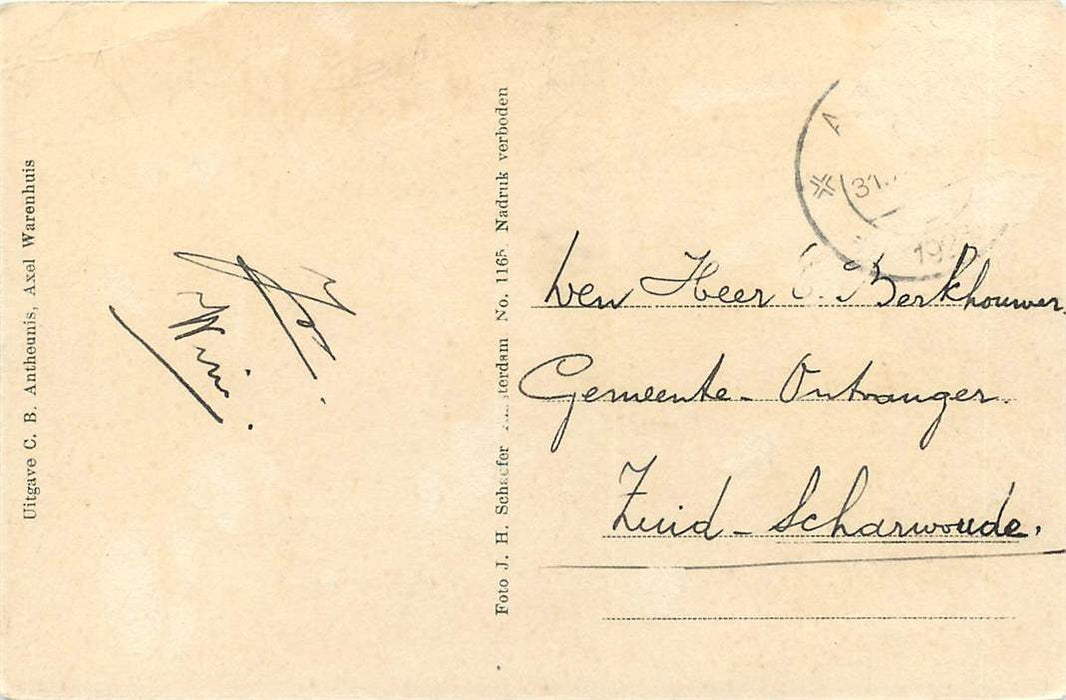 Uitgave C. B. Antheunis, Axel Warenhuis
Foto J. H. Schaefer Amsterdam No. 1165 Nadruk verboden
31.
19
Den Heer C. Berkhouwer
Gemeente-Ontvanger.
Zuid-Scharwoude.